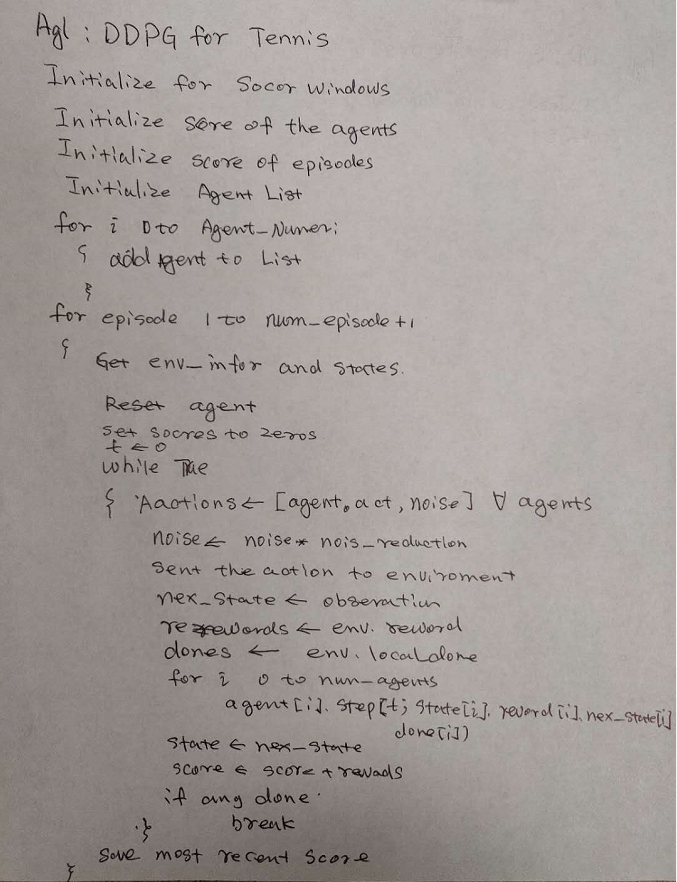 Agl : DDPG for Tennis
Initialize for Socor windows
Initialize score of the agents
Initialize score of episodes
Initialize Agent List
for i 0 to Agent_Numer:
{ add Agent to List
}
for episode 1 to num_episode +1
{
Get env_infor and states.
Reset agent
set socres to zeros
t ← 0
while True
{ Aactions ← [agent.act, noise] ∀ agents
noise ← noise * nois_reduction
sent the action to enviroment
nex_state ← obseration
rewords ← env. reword
dones ← env. local done
for i 0 to num-agents
agent[i]. step[t; state[i]. reword[i]. nex_state[i]
done[i])
state ← nex-state
score ← score + rewads
if any done.
break
}
Save most recent score
}